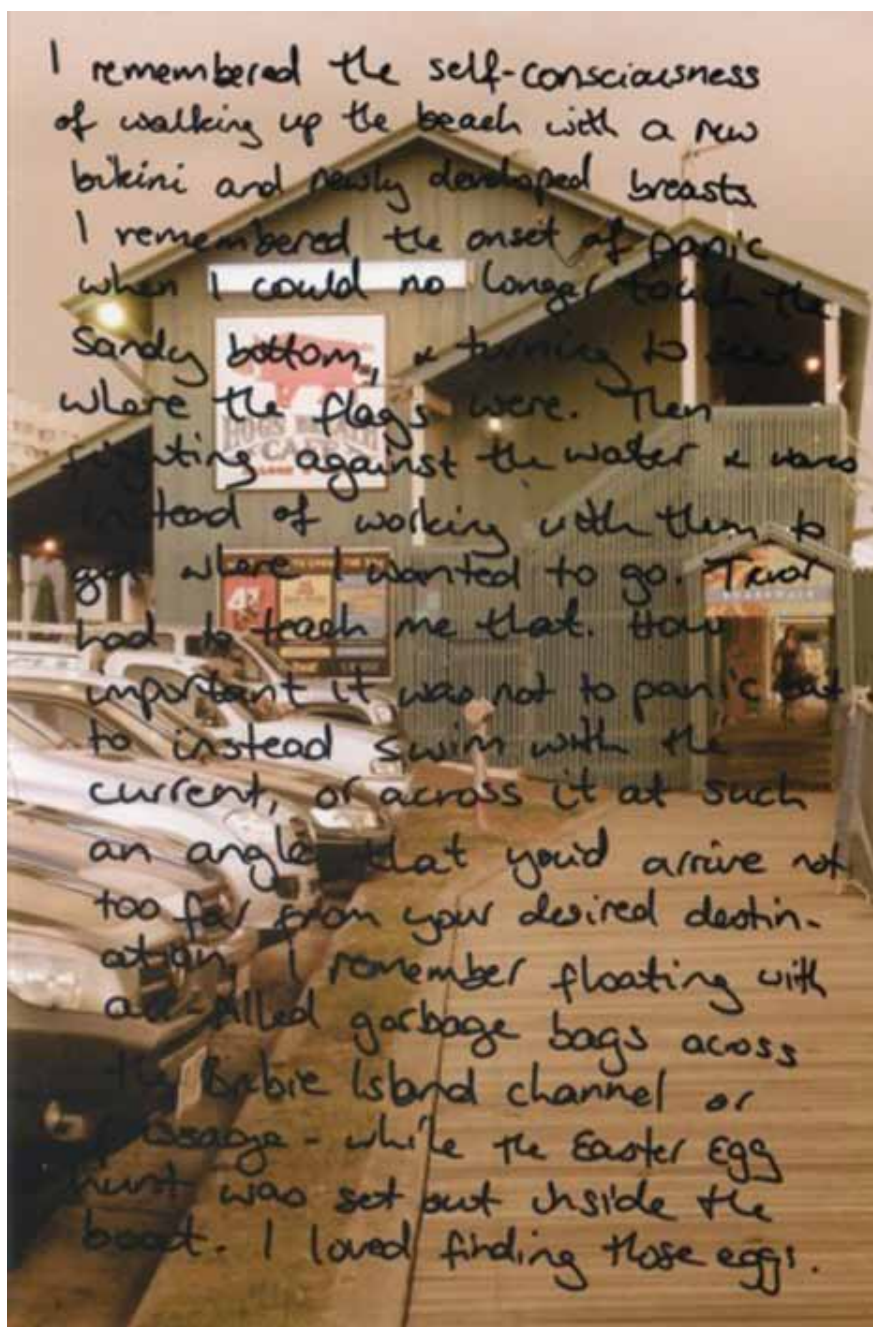 I remembered the self-consciousness
of walking up the beach with a new
bikini and newly developed breasts
I remembered the onset of panic
when I could no longer touch the
Sandy bottom, & turning to see
where the flags were. Then
HOGS BREATH
CAFE
fighting against the water &
instead of working with them to
get where I wanted to go.
BOARDWALK
had to teach me that. How
important it was not to panic but
to instead swim with the
current, or across it at such
an angle that you'd arrive not
too far from your desired destin-
ation. I remember floating with
air-filled garbage bags across
the Bribie Island channel or
passage - while the Easter Egg
hunt was set out inside the
boat. I loved finding those eggs.